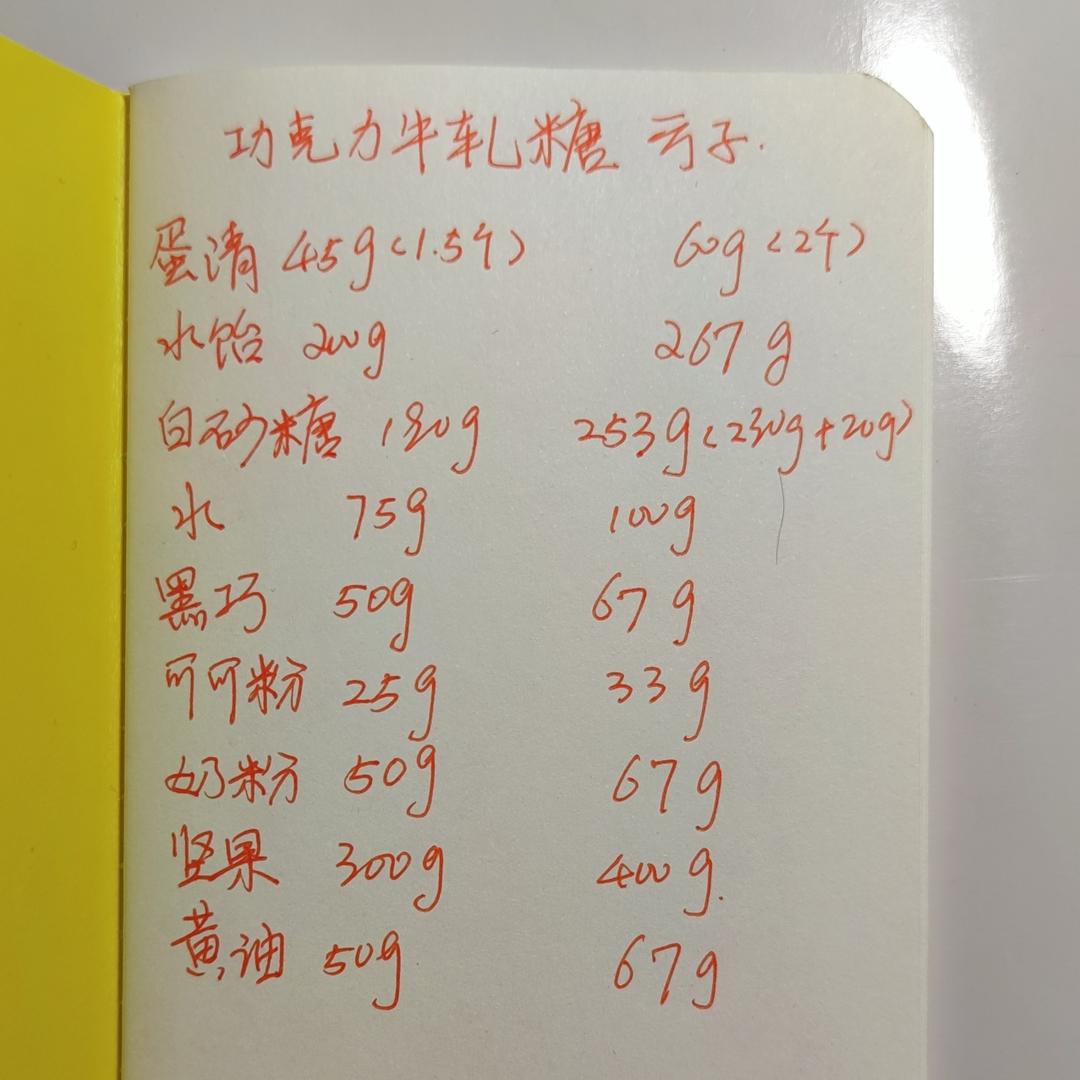 巧克力牛轧糖 云子.
蛋清 45g(1.5个) 60g(2个)
水饴 200g 267g
白砂糖 190g 253g(230g+20g)
水 75g 100g
黑巧 50g 67g
可可粉 25g 33g
奶粉 50g 67g
坚果 300g 400g.
黄油 50g 67g